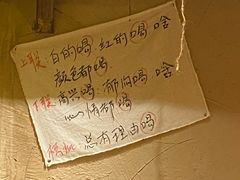 上联：白的喝 红的喝 啥
颜色都喝
下联：高兴喝：郁闷喝 啥
心情都喝
横批：总有理由喝